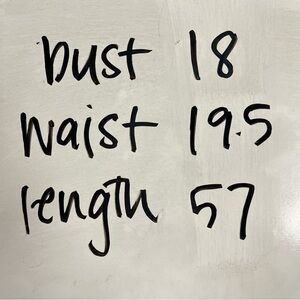 bust 18
waist 19.5
length 57